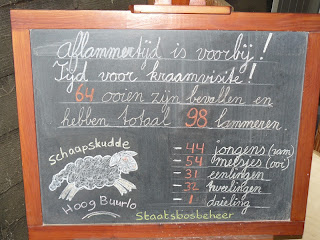 Aflammertijd is voorbij!
Tijd voor kraamvisite!
64 ooien zijn bevallen en
hebben totaal 98 lammeren.
Schaapskudde
Hoog Buurlo
- 44 jongens (ram)
- 54 meisjes (ooi)
- 31 eenlingen
- 32 tweelingen
- 1 drieling
Staatsbosbeheer